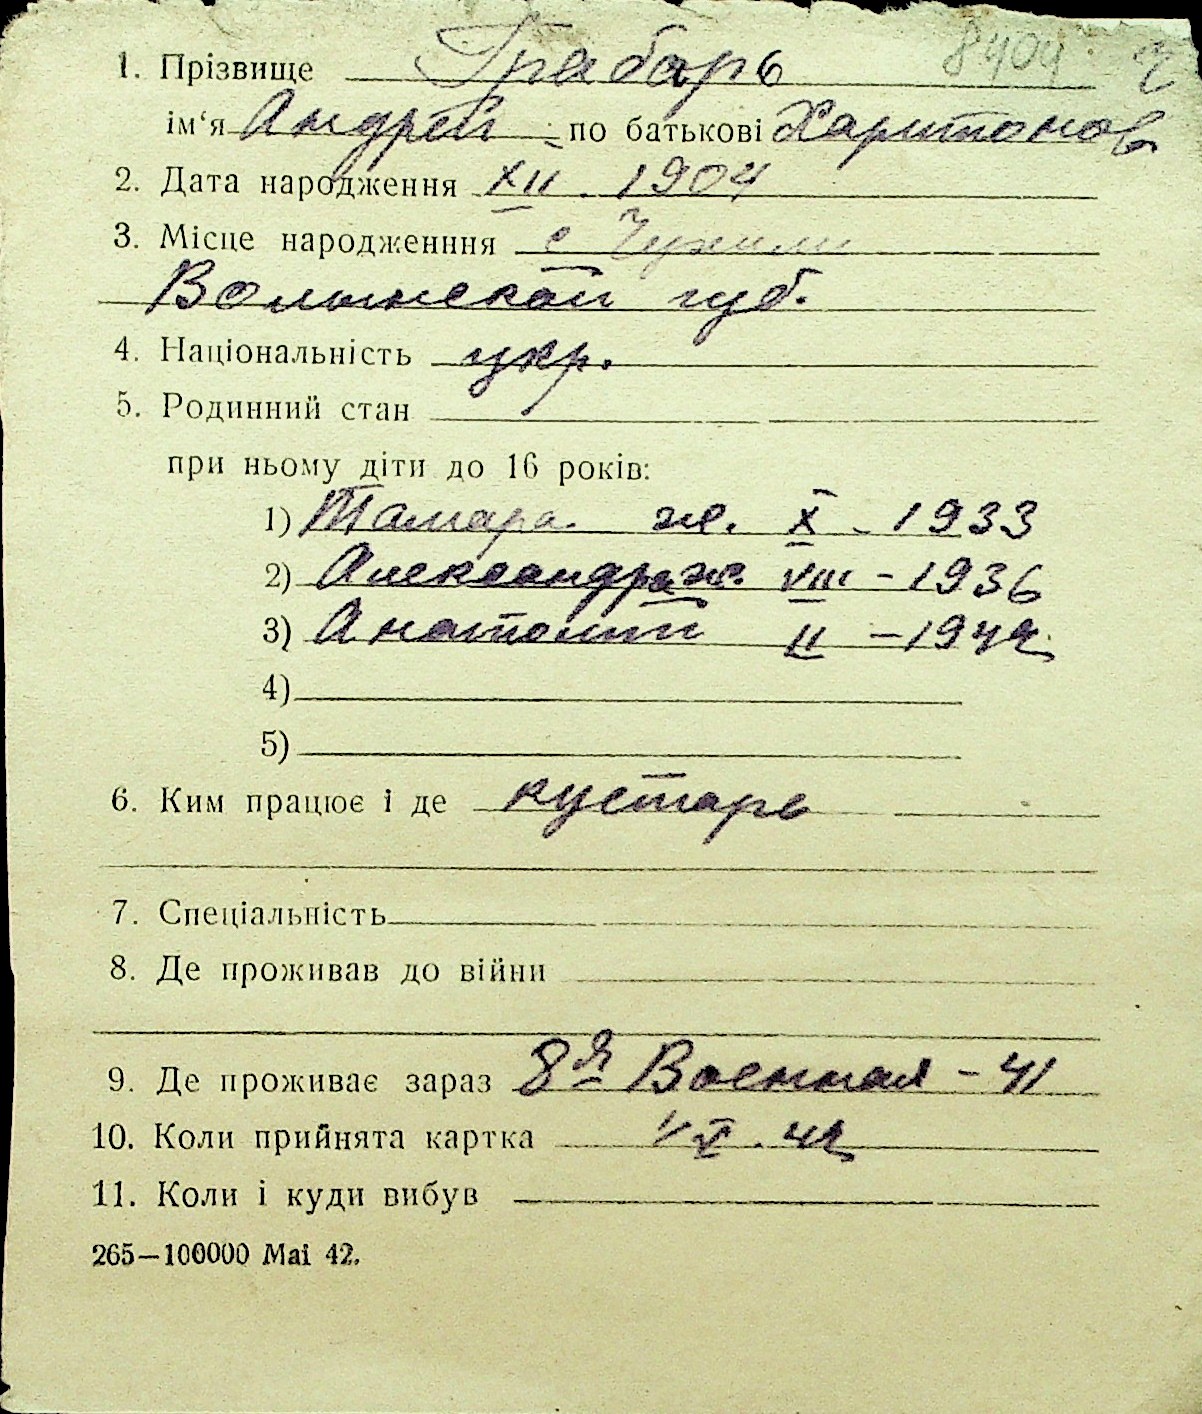 8404
1. Прізвище Грабарь
ім‘я Андрей по батькові Харитонов
2. Дата народження XII. 1904
3. Місце народженння с
Волынской губ.
4. Національність укр.
5. Родинний стан
при ньому діти до 16 років:
1) Тамара ж. X - 1933
2) Александра ж. VIII - 1936
3) Анатолий II - 1942
4)
5)
6. Ким працює і де кустарь
7. Спеціальність
8. Де проживав до війни
9. Де проживає зараз 8я Военная - 41
10. Коли прийнята картка
11. Коли і куди вибув
265—100000 Mai 42.